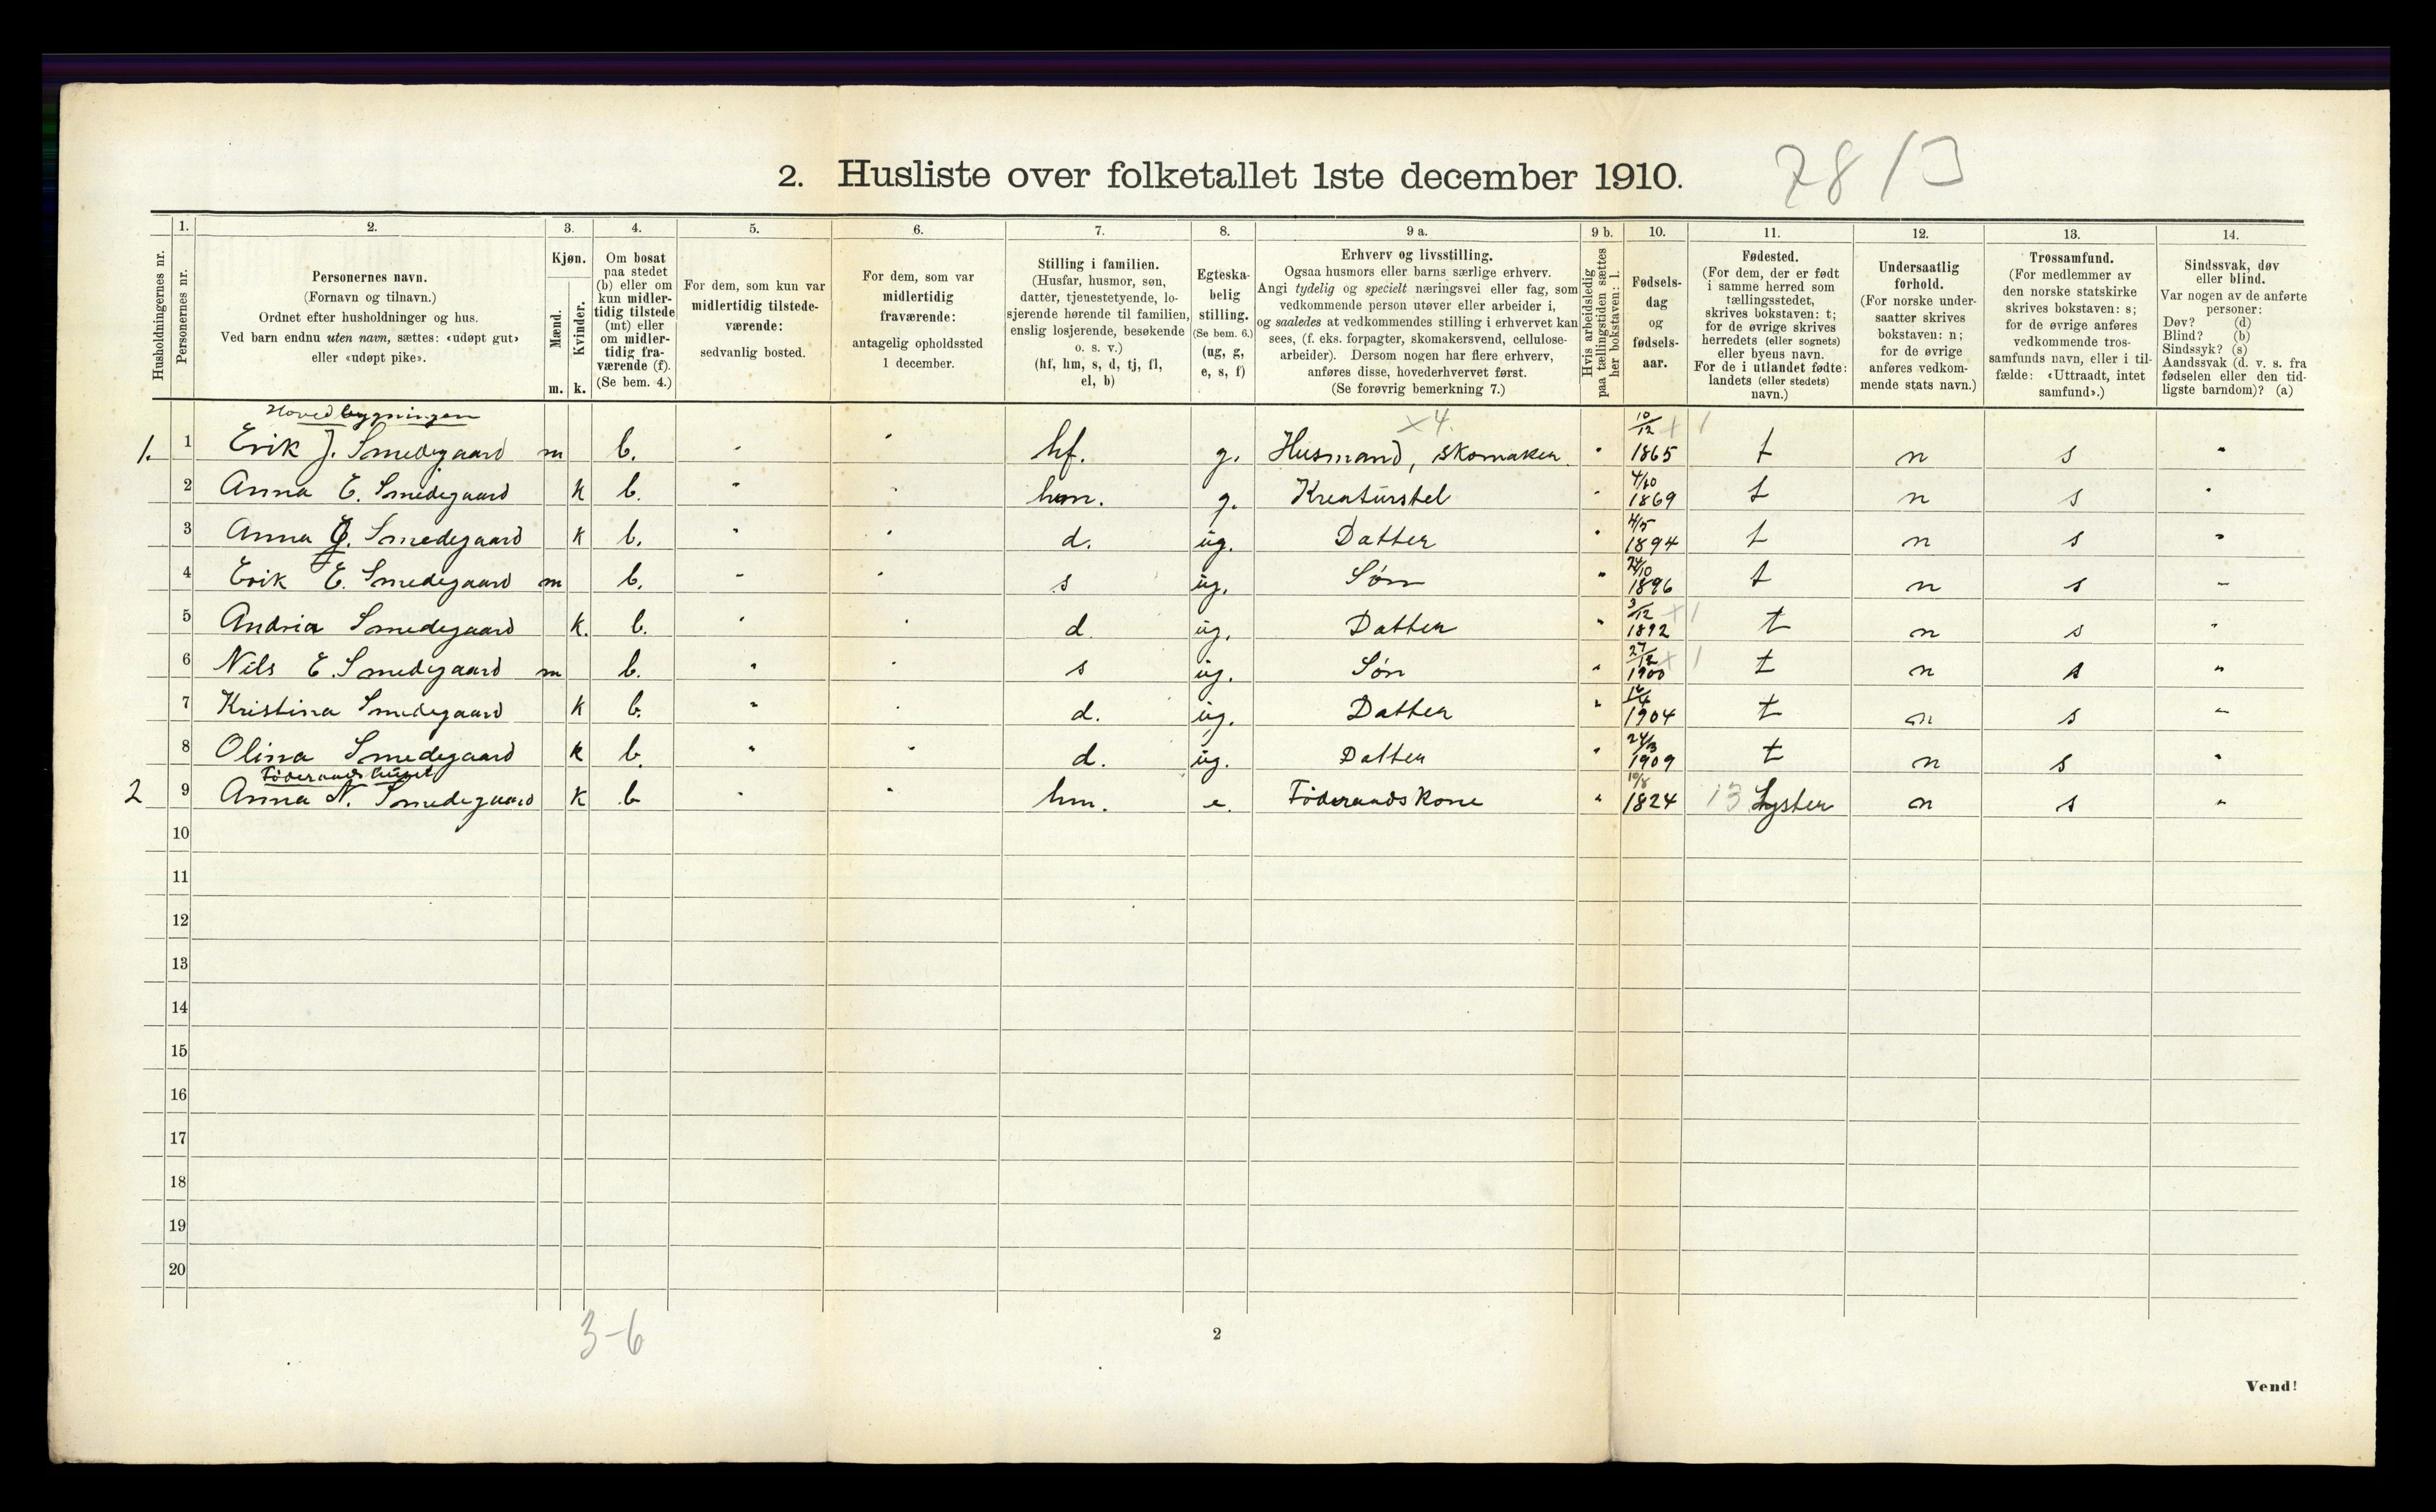 2. Husliste over folketallet 1ste december 1910. 78/3
1. 2. 3. 4. 5. 6. 7. 8. 9 a. 9 b. 10. 11. 12. 13. 14.
Husholdningernes nr.
Personernes nr.
Personernes navn.
(Fornavn og tilnavn.)
Ordnet efter husholdninger og hus.
Ved barn endnu uten navn, sættes: «udøpt gut»
eller «udøpt pike».
Kjøn.
Mænd.
m.
Kvinder.
k.
Om bosat
paa stedet
(b) eller om
kun midler-
tidig tilstede
(mt) eller
om midler-
tidig fra-
værende (f).
(Se bem. 4.)
For dem, som kun var
midlertidig tilstede-
værende:
sedvanlig bosted.
For dem, som var
midlertidig
fraværende:
antagelig opholdssted
1 december.
Stilling i familien.
(Husfar, husmor, søn,
datter, tjenestetyende, lo-
sjerende hørende til familien,
enslig losjerende, besøkende
o. s. v.)
(hf, hm, s, d, tj, fl,
el, b)
Egteska-
belig
stilling.
(Se bem. 6.)
(ug, g,
e, s, f)
Erhverv og livsstilling.
Ogsaa husmors eller barns særlige erhverv.
Angi tydelig og specielt næringsvei eller fag, som
vedkommende person utøver eller arbeider i,
og saaledes at vedkommendes stilling i erhvervet kan
sees, (f. eks. forpagter, skomakersvend, cellulose-
arbeider). Dersom nogen har flere erhverv,
anføres disse, hovederhvervet først.
(Se forøvrig bemerkning 7.)
Hvis arbeidsledig
paa tællingstiden sættes
her bokstaven: l.
Fødsels-
dag
og
fødsels-
aar.
Fødested.
(For dem, der er født
i samme herred som
tællingsstedet,
skrives bokstaven: t;
for de øvrige skrives
herredets (eller sognets)
eller byens navn.
For de i utlandet fødte:
landets (eller stedets)
navn.)
Undersaatlig
forhold.
(For norske under-
saatter skrives
bokstaven: n;
for de øvrige
anføres vedkom-
mende stats navn.)
Trossamfund.
(For medlemmer av
den norske statskirke
skrives bokstaven: s;
for de øvrige anføres
vedkommende tros-
samfunds navn, eller i til-
fælde: «Uttraadt, intet
samfund».)
Sindssvak, døv
eller blind.
Var nogen av de anførte
personer:
Døv? (d)
Blind? (b)
Sindssyk? (s)
Aandssvak (d. v. s. fra
fødselen eller den tid-
ligste barndom)? (a)
Hovedbygningen
1. 1 Erik J. Smedegaard m b. - " hf. g. Husmand, skomaker. x4. " 10/12 1865 x 1 t n s "
2 Anna E. Smedegaard k b. " " hm. g. Kreaturstel " 4/10 1869 t n s "
3 Anna G. Smedegaard k b. " " d. ug. Datter " 4/5 1894 t n s "
4 Erik E. Smedegaard m b. - " s ug. Søn " 24/10 1896 t n s -
5 Andria Smedegaard k. b. " " d. ug. Datter " 3/12 1892 x 1 t n s "
6 Nils E. Smedegaard m b. " " s ug. Søn " 27/12 1900 x 1 t n s "
7 Kristina Smedegaard k b. " " d. ug. Datter " 1904 t n s "
8 Olina Smedegaard k b. " " d. ug. Datter " 24/3 1909 t n s "
Föderaads huset
2 9 Anna N. Smedegaard k b " " hm. e. Föderaads Kone " 10/8 1824 13 Lyster n s "
10
11
12
13
14
15
16
17
18
19
20
3-6
2
Vend!